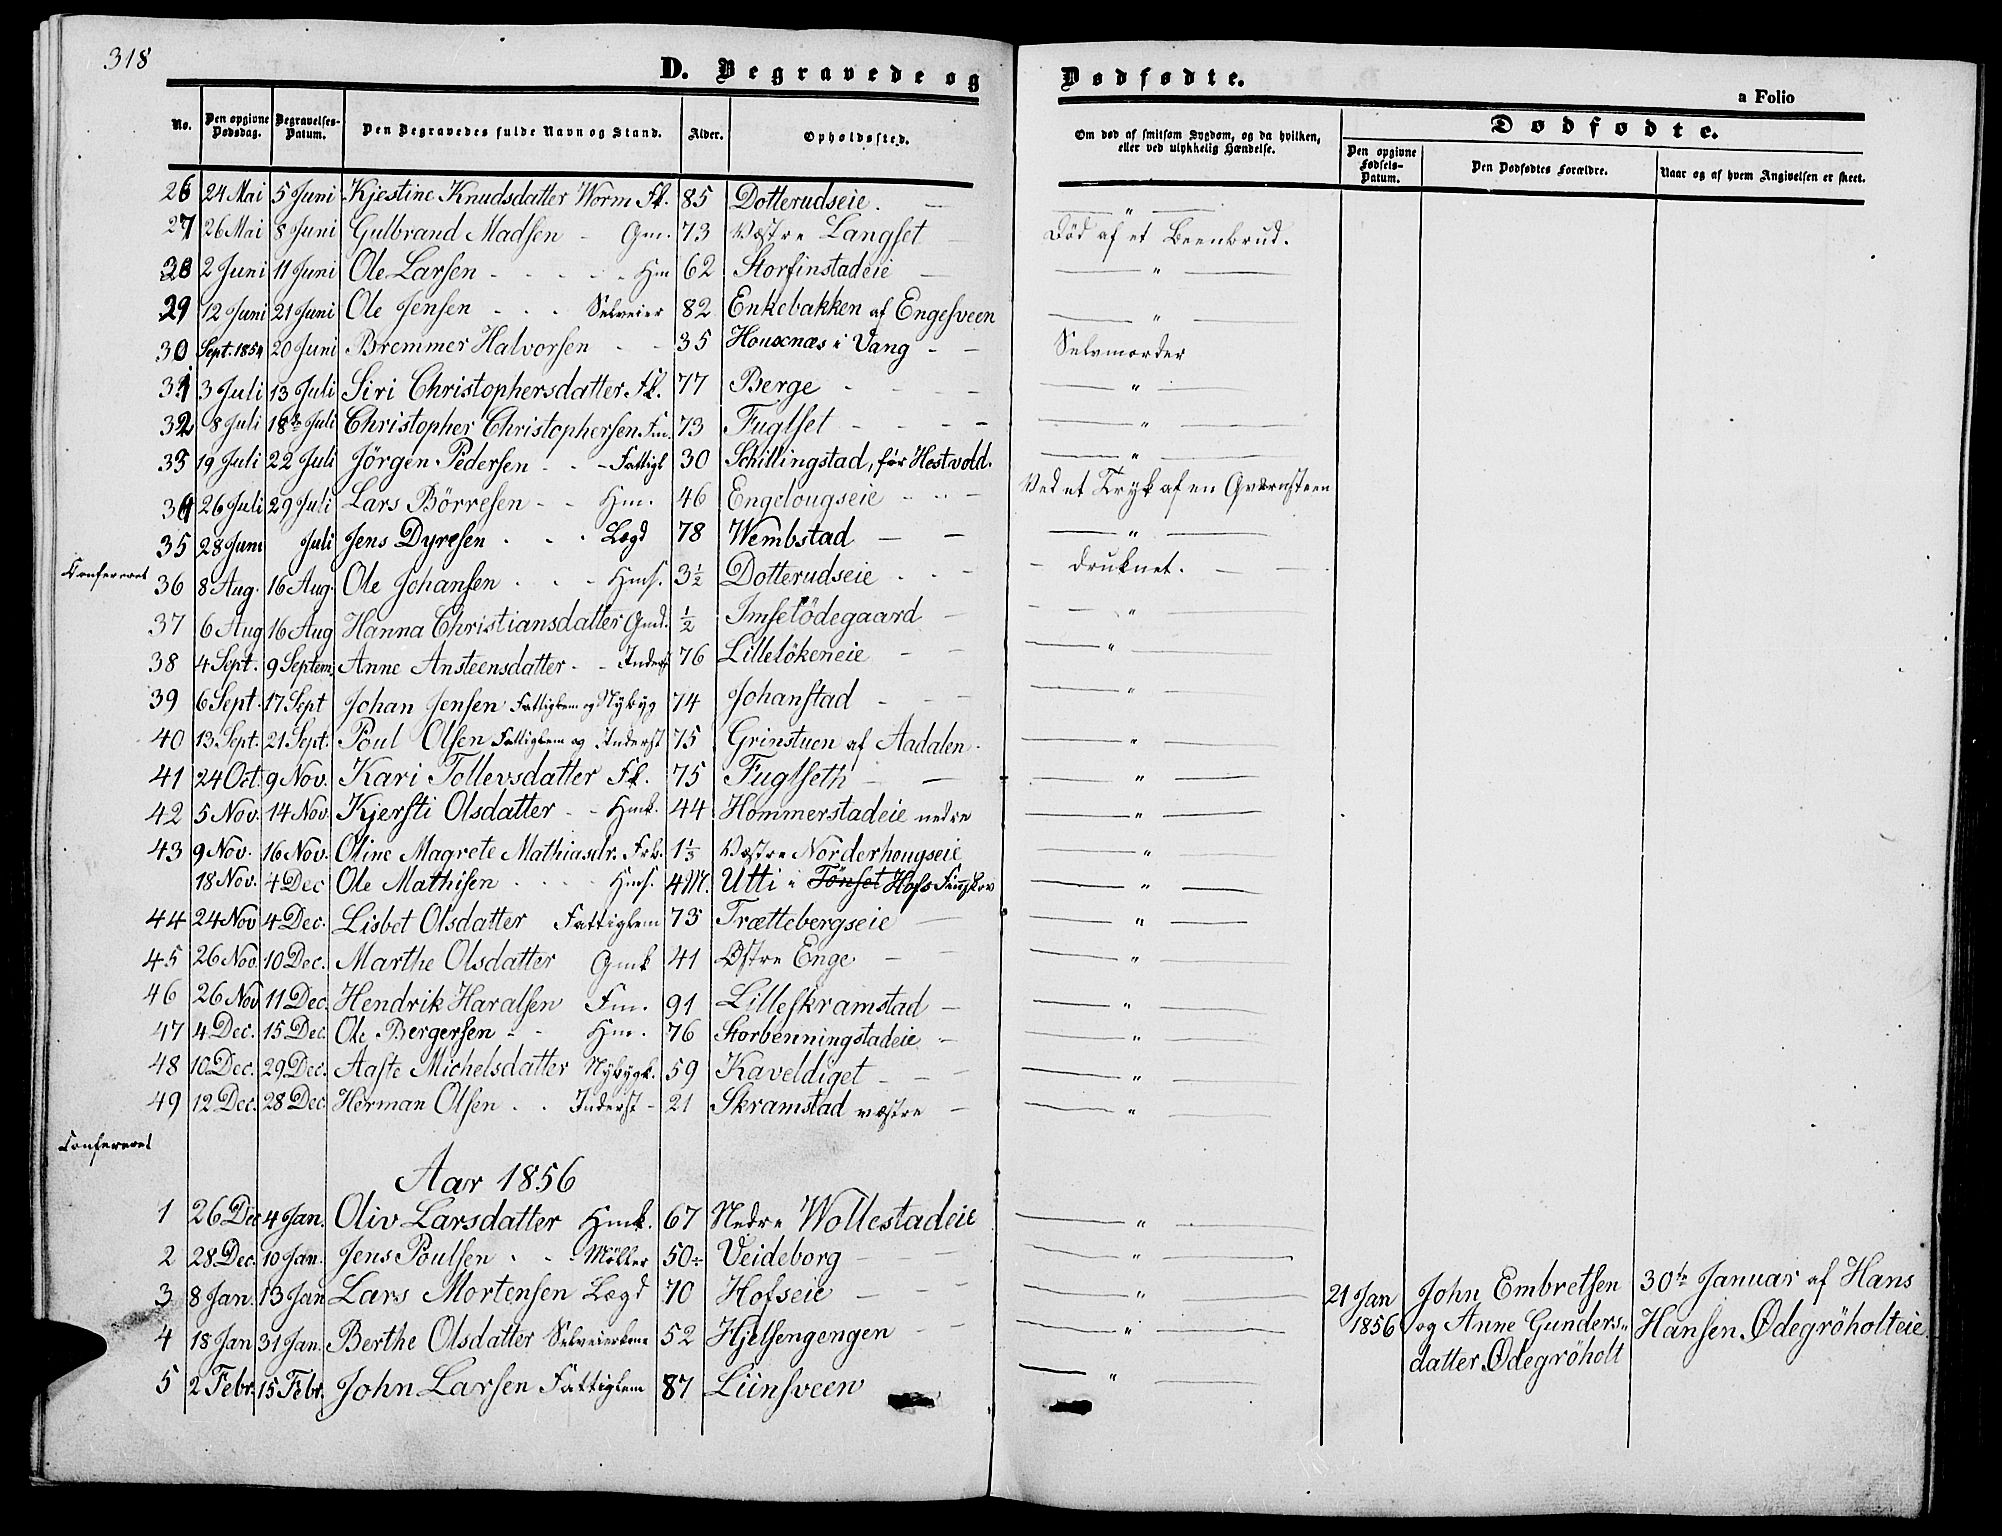 318
D. Begravede og Dødfødte.
a Folio
No. Den opgivne Dødsdag. Begravelses-Datum. Den Begravedes fulde Navn og Stand. Alder. Opholdssted. Om død af smitsom Sygdom, og da hvilken, eller ved ulykkelig Hændelse. Dødfødte.
Den opgivne Fødsels-Datum. Den Dødfødtes Forældre. Naar og af hvem Angivelsen er skeet.
26 24 Mai 5 Juni Kjestine Knudsdatter Worm Fk. 85 Dotterudseie. — — " —
27 26 Mai 8 Juni Gulbrand Madsen - Gm. 73 Væstre Langset — Død af et Beenbrud.
28 2 Juni 11 Juni Ole Larsen - - - - - Hm 62 Storfinstadeie — — " —
29 12 Juni 21 Juni Ole Jensen - - - Selveier 82 Enkebakken af Engesveen — " —
30 Sept. 1854 20 Juni Bremmer Halvorsen - - 35 Housenæs i Vang - - Selvmorder
31 3 Juli 13 Juli Siri Christophersdatter Fk. 77 Berge - - - — " —
32 8 Juli 18de Juli Christopher Christophersen Fm. 73 Fuglset - - - - — " —
33 19 Juli 22 Juli Jörgen Pedersen - - - Fattigl 30 Schillingstad, før Hestvold. — " —
34 26 Juli 29 Juli Lars Börresen - - Hm. 46 Engelougseie - - - Ved et Tryk af en Qværnsteen
35 28 Juni Juli Jens Dyresen - - - Lægd 78 Wembstad — — — " —
Confereret
36 8 Aug. 16 Aug. Ole Johansen - - - Hms. 3 1/2 Dotterudseie - - - - druknet. — —
37 6 Aug 16 Aug Hanna Christiansdatter Gmd. 1/2 Imselödegaard — - — " —
38 4 Sept. 9 Septem, Anne Ansteensdatter - - Inderst 76 Lillelökeneie — — — " —
39 6 Sept. 17 Sept Johan Jensen Fattiglem og Nybyg 74 Johanstad - - — " —
40 13 Sept. 21 Sept. Poul Olsen Fattiglem og Inderst 75 Grinstuen af Aadalen - — " —
41 24 Oct. 9 Nov. Kari Tollevsdatter Fk. 75 Fuglseth - — — " —
42 5 Nov. 14 Nov. Kjersti Olsdatter - - Hmk. 44 Hommerstadeie nedre — " —
43 9 Nov. 16 Nov. Oline Magrete Mathiasdr. Frk. 1 1/3 Væstre Norderhougseie — " —
18 Nov. 4 Dec Ole Mathisen - - - - Hms. 4 M. Utti i Tönset Hofs Finskov — " —
44 24 Nov 4 Dec. Lisbet Olsdatter Fattiglem 73 Trættebergseie — — " —
45 26 Nov. 10 Dec. Marthe Olsdatter Gmk 41 Østre Enge — — — " —
46 26 Nov 11 Dec. Hendrik Haralsen Fm. 91 Lilleskramstad — — " —
47 4 Dec. 15 Dec. Ole Bergersen - - Hm. 76 Storbenningstadeie — — " —
48 10 Dec. 29 Dec. Aaste Michelsdatter Nybygk. 59 Kaveldiget — — — — " —
49 12 Dec. 28 Dec Herman Olsen - - Inderst - 21 Skramstad væstre — — " —
Confereret
Aar 1856
1 26 Dec 4 Jan. Oliv Larsdatter Hmk. 67 Nedre Wollestadeie — " —
2 28 Dec. 10 Jan. Jens Poulsen - - Möller 50 Veideborg — — " —
3 8 Jan. 13 Jan Lars Mortensen Lægd 70 Hofseie — — — " —
4 18 Jan 31 Jan. Berthe Olsdatter Selveierkone 52 Hjelsengengen — — — " —
5 2 Febr. 15 Febr. John Larsen Fattiglem 87 Liinsveen — " —
21 Jan John Embretsen 30te Januar af Hans
1856 og Anne Gunders- Hansen Ødegröholteie
datter Ødegröholt